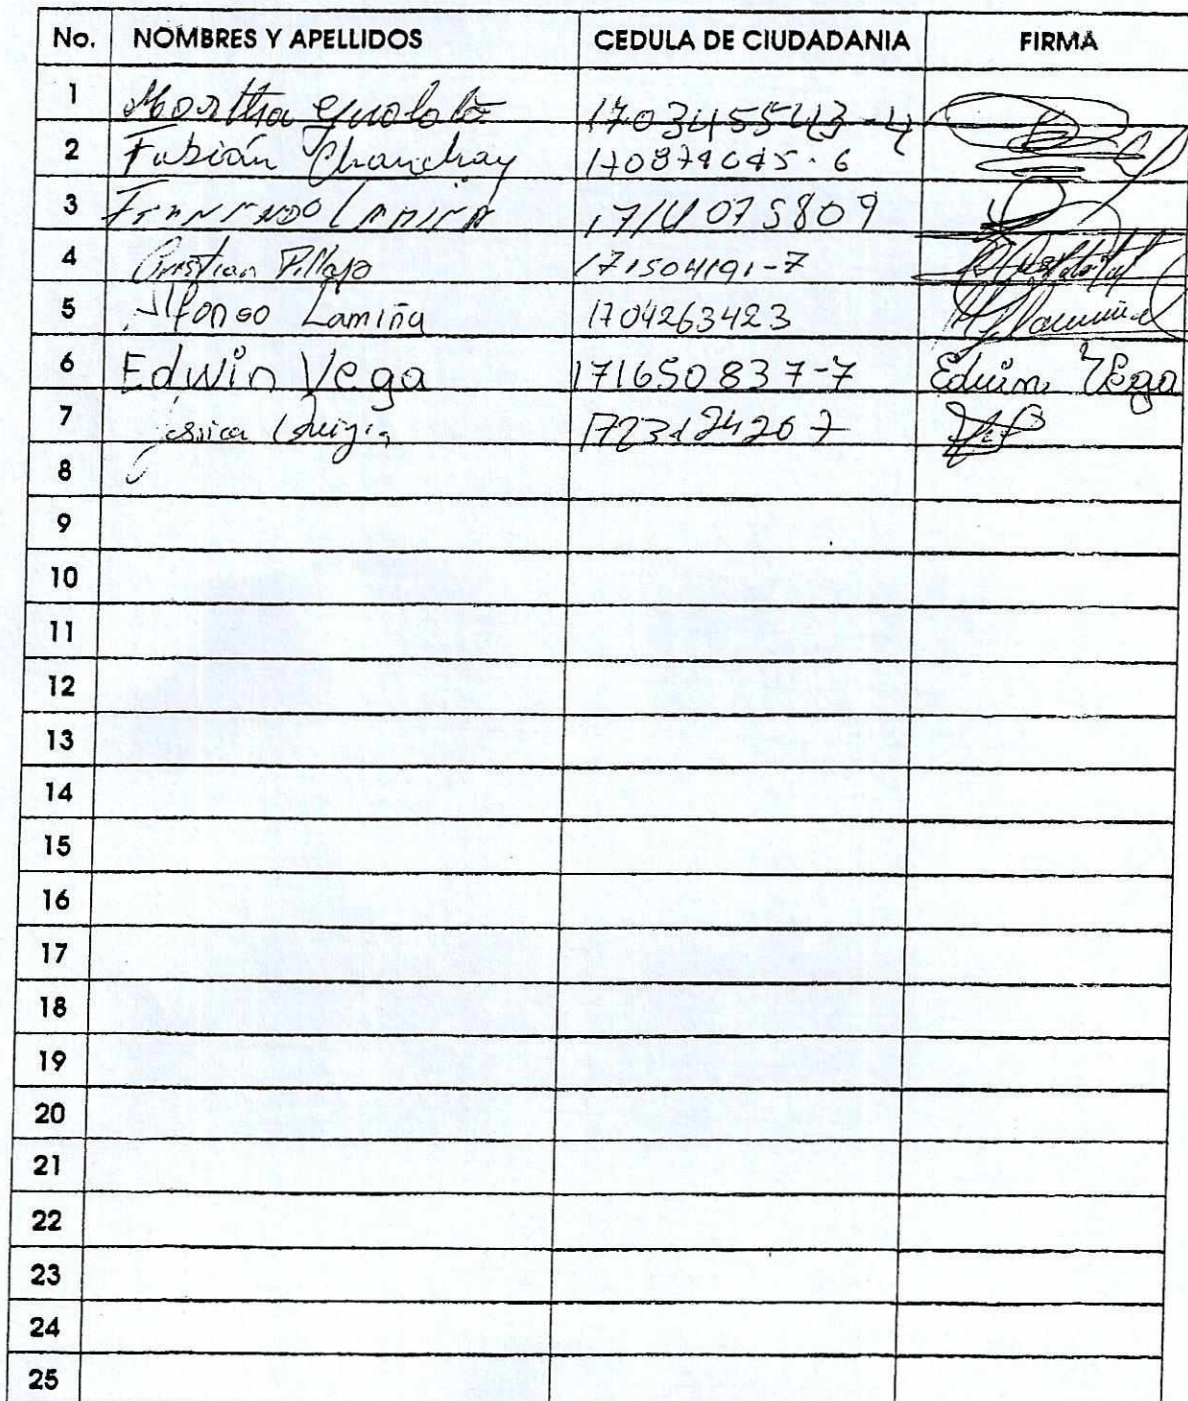 No. NOMBRES Y APELLIDOS CEDULA DE CIUDADANIA FIRMA
1 Martha 170345543-4
2 Fabián Chanchay 170874045-6
3 FERNANDO LAMIÑA 1714075809
4 Cristian Pillajo 171504191-7
5 Alfonso Lamiña 1704263423
6 Edwin Vega 171650837-7 Edwin Vega
7 1723124207
8
9
10
11
12
13
14
15
16
17
18
19
20
21
22
23
24
25